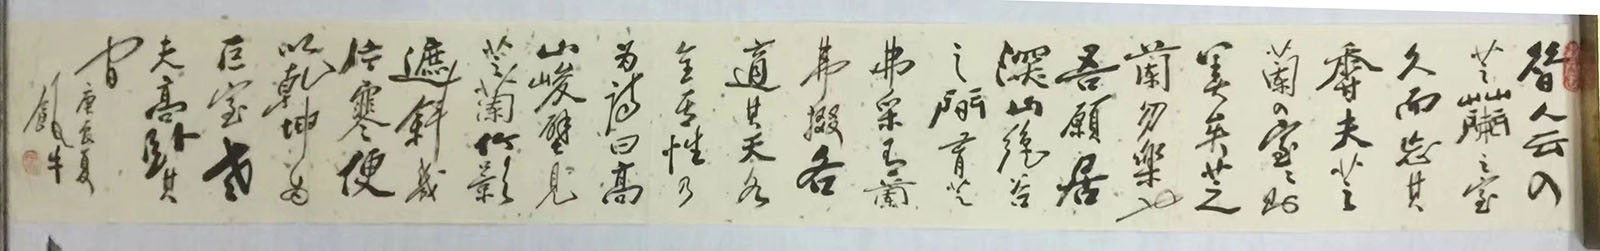 昔人云入
芝蘭之室
久而忘其
香夫芝
蘭入室室則
美矣芝
蘭勿樂也
吾願居
深山絕谷
之間有芝
弗采有蘭
弗掇各
適其天各
全其性乃
为詩曰高
山峻壁見
芝蘭竹影
遮斜幾
片寒便
以乾坤為
巨室老
夫高臥其
間
庚辰夏
牛